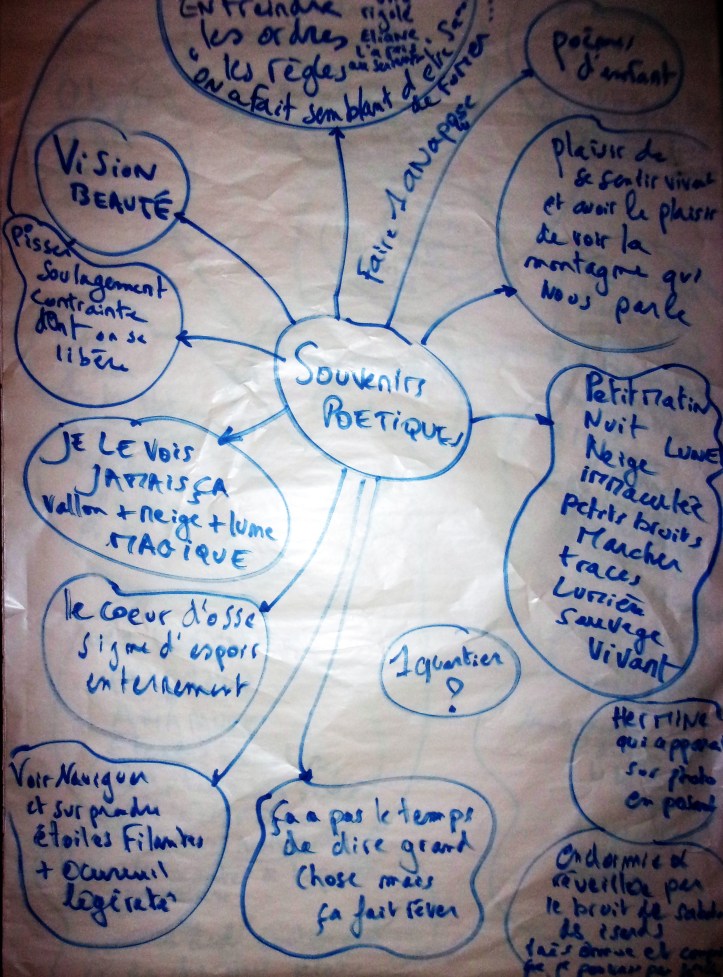 ENFREINDRE
les ordres
les règles
rigolé
ELIANE
L'a fait
"on a fait semblant d'être
poëmes
d'enfant
Faire 1 ANAPOSE
VISION
BEAUTÉ
plaisir de
se sentir vivant
et avoir le plaisir
de voir la
montagne qui
Nous parle
Pisser
Soulagement
Contrainte
dont on se
libère
Souvenirs
POETIQUES
Petit Matin
Nuit LUNE
Neige
immaculée
petits bruits
Marcher
traces
Lumière
Sauvage
Vivant
JE LE VOIS
JAMAIS ÇA
Vallon + neige + lune
MAGIQUE
le coeur d'osse
signe d'espoir
enterrement
1 quartier
?
HERMINE
qui appara
sur photo
en posant
Voir Naviguer
et surprendre
étoiles Filantes
+ écureuil
légèreté
ça a pas le temps
de dire grand
chose mais
ça fait rêver
endormie et
réveillée par
le bruit de
des isards